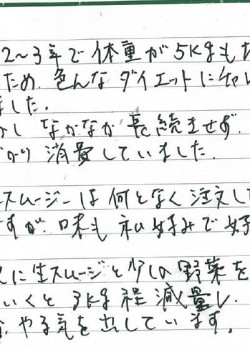 2～3年で体重が5kgも
ため、色んなダイエットにチャレ
ました。
かし なかなか長続きせず、
ばかり 消費していました。
スムージーは何となく注文し
すが、味も私好みで
に生スムージと少しの野菜を
いくと 3kg程減量し、
やる気を出しています。